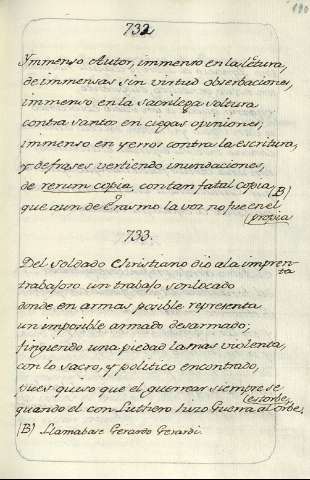 190
732
Ymmenso Autor, immenso en la letura,
de immensas sin virtud obserbaciones,
immenso en la sacrilega soltura
contra santos en ciegas opiniones;
immenso en yerros contra la escritura,
y de frases vertiendo inundaciones,
de rerum copia, con tan fatal copia (B)
que aun de Erasmo la voz no fue en el
propia
733.
Del soldado Christiano dio a la imprenta
trabajoso un trabajo
donde en armas posible representa
un imposible armado desarmado;
fingiendo una piedad la mas violenta,
con lo sacro, y politico encontrado,
pues quiso que el guerrear siempre se
estorbe,
quando el con Luthero hizo Guerra al orbe,
(B) Llamabase Gerardo Gerardi.